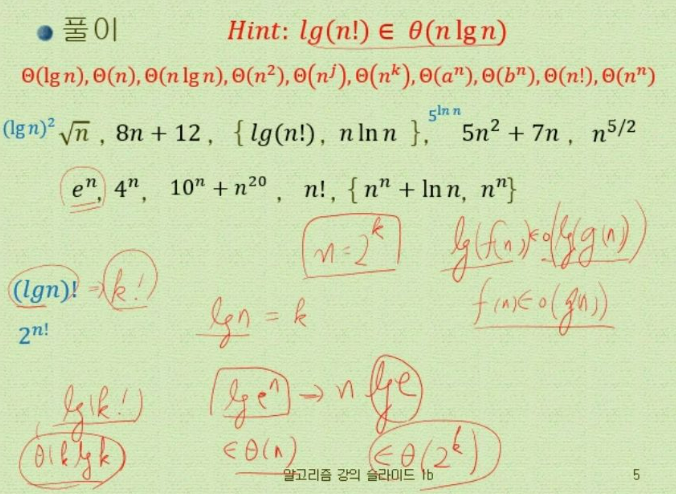 풀이 Hint: lg(n!) ∈ θ(n lg n)
Θ(lg n), Θ(n), Θ(n lg n), Θ(n²), Θ(nʲ), Θ(nᵏ), Θ(aⁿ), Θ(bⁿ), Θ(n!), Θ(nⁿ)
(lg n)² √n , 8n + 12 , { lg(n!) , n ln n }, 5^{ln n} 5n² + 7n , n^{5/2}
eⁿ, 4ⁿ, 10ⁿ + n²⁰ , n! , { nⁿ + ln n, nⁿ}
n = 2ᵏ lg(f(n)) ∈ o(lg(g(n)))
(lgn)! ⇒ k! f(n) ∈ o(g(n))
lgn = k
2^{n!}
lg(k!) lg eⁿ → n lg e
θ(k lg k) ∈ θ(n) ∈ θ(2ᵏ)
알고리즘 강의 슬라이드 1b 5